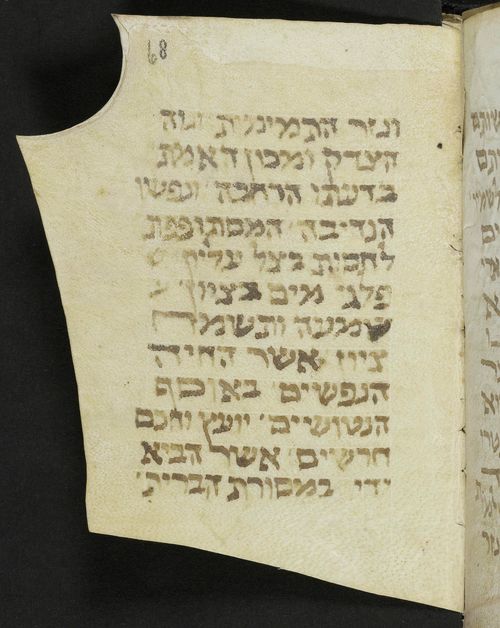 68
ונזר התמימות
הצדק ומכון האמת
בדעתו הרחבה ונפשו
הנדיבה המסתופפת
לחסות בצל
פלגי מים בציון
שמעה ותשמח
ציון אשר החיה
הנפשים באוסף
הנטושים יועץ וחכם
חרשים אשר הביא
ידי במסורת הברית